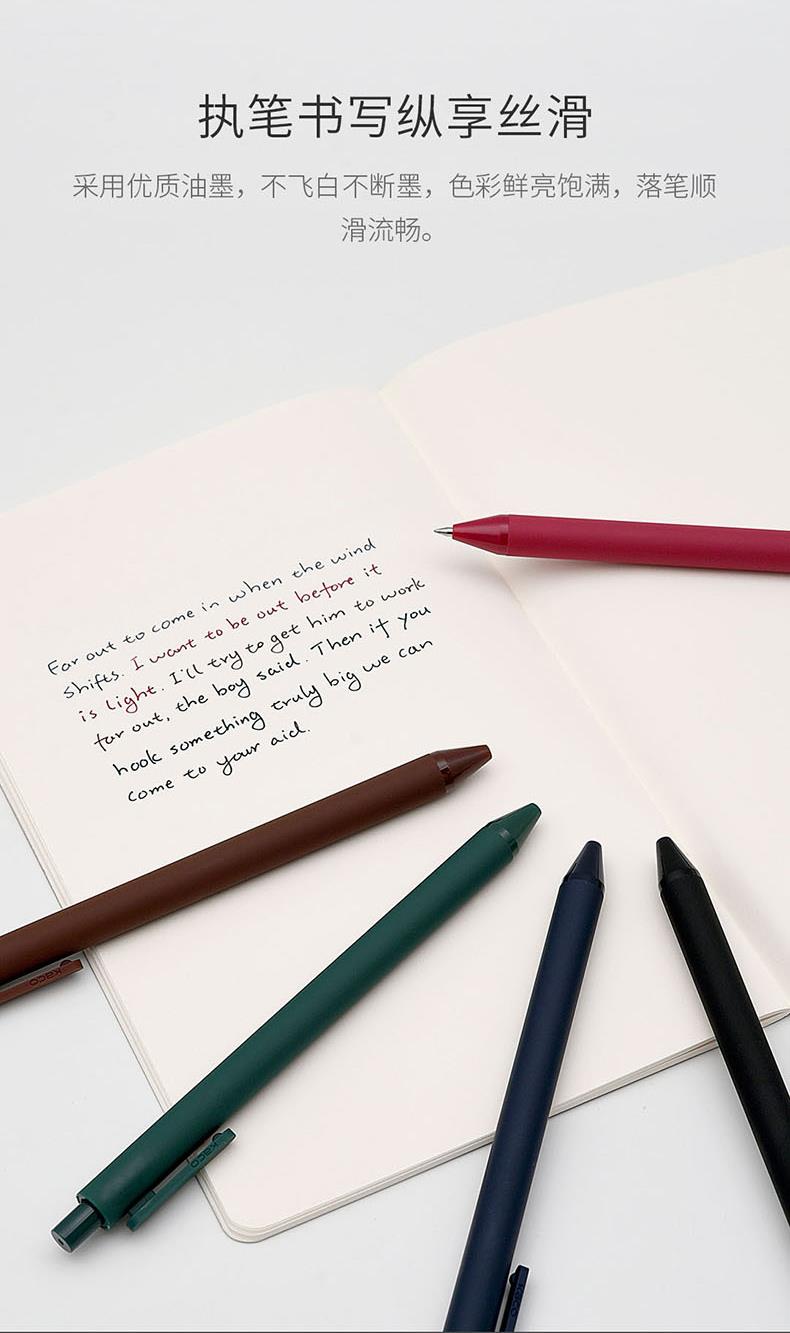 执笔书写纵享丝滑
采用优质油墨，不飞白不断墨，色彩鲜亮饱满，落笔顺
滑流畅。
Far out to come in when the wind
shifts. I want to be out before it
is light. I'll try to get him to work
far out, the boy said. Then if you
hook something truly big we can
come to your aid.
kaco
kaco
kaco